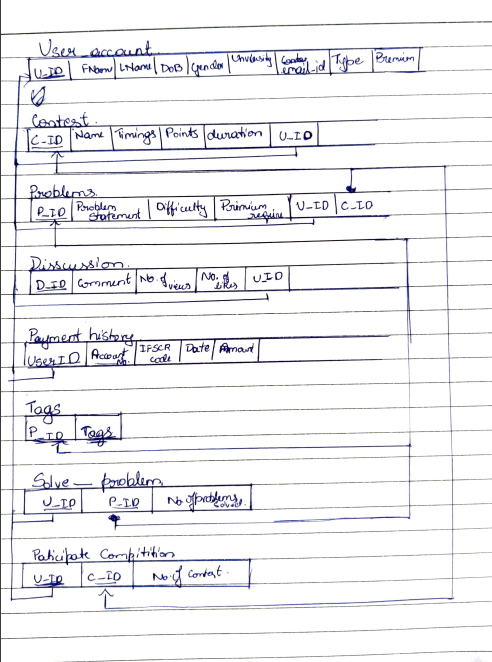 User_account.
U_ID FName LName DoB Gender University email_id Type Premium
Contest.
C_ID Name Timings Points duration U_ID
Problems.
P_ID Problem Statement Difficulty Primium require U_ID C_ID
Disscussion.
D_ID Comment No. of views No. of likes UID
Payment history
User ID Account No. IFSCR code Date Amount
Tags
P_ID Tags
Solve _ problem
U_ID P_ID No of problems solved.
Paticipate Compitition
U_ID C_ID No. of Contest.